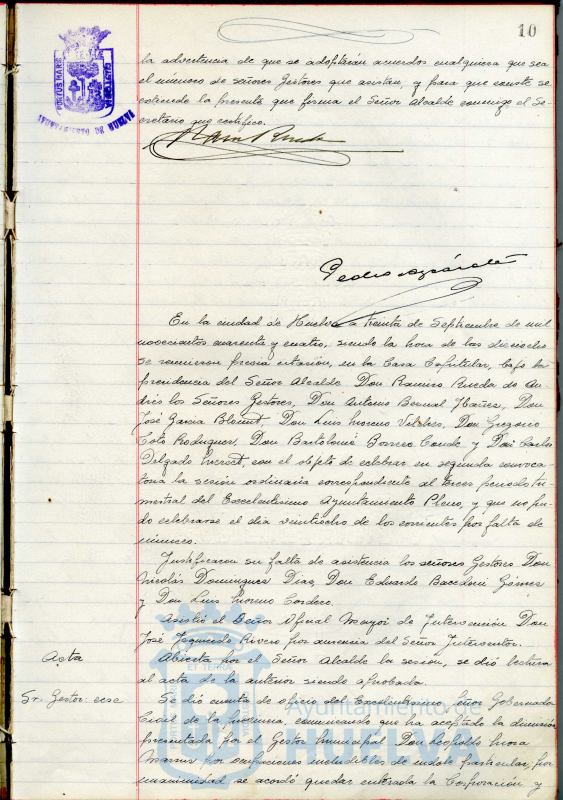 10
PORTUS MARIS
CUSTODIA
AYUNTAMIENTO DE HUELVA
la advertencia de que se adoptarán acuerdos cualquiera que sea
el número de señores Gestores que asistan, y para que conste se
extiende la presente que firma el Señor Alcalde conmigo el Se-
cretario que certifico.
Pedro
En la ciudad de Huelva a treinta de Septiembre de mil
novecientos cuarenta y cuatro, siendo la hora de las dieciocho
se reunieron previa citación, en la Casa Capitular, bajo la
presidencia del Señor Alcalde Don Ramiro Rueda de An-
drés los Señores Gestores, Don Antonio Bernal Ibáñez, Don
José Garcia Blocunt, Don Luis Moreno Don Gregorio
Coto Rodriguez, Don Bartolomé Borrero Conde y Don Carlos
Delgado con el objeto de celebrar en segunda convoca-
toria la sesión ordinaria correspondiente al tercer periodo tri-
mestral del Excelentísimo Ayuntamiento Pleno, y que no pu-
do celebrarse el día veintiocho de los corrientes por falta de
número.
Justificaron su falta de asistencia los señores Gestores Don
Nicolás Dominguez Diaz, Don Eduardo Gómez
y Don Luis Moreno Cordero.
Asistió el Señor Oficial Mayor de Intervención Don
José Izquierdo Rivero por ausencia del Señor Interventor.
Acta
Abierta por el Señor Alcalde la sesion, se dió lectura
al acta de la anterior siendo aprobada.
Sr. Gestor: cese
Se dió cuenta de oficio del Excelentísimo Señor Gobernador
Civil de la provincia, comunicando que ha aceptado la dimisión
presentada por el Gestor Municipal Don Leopoldo Mora
por ocupaciones ineludibles de indole particular, por
unanimidad se acordó quedar enterada la Corporación, y
Ayuntamiento de
HUELVA